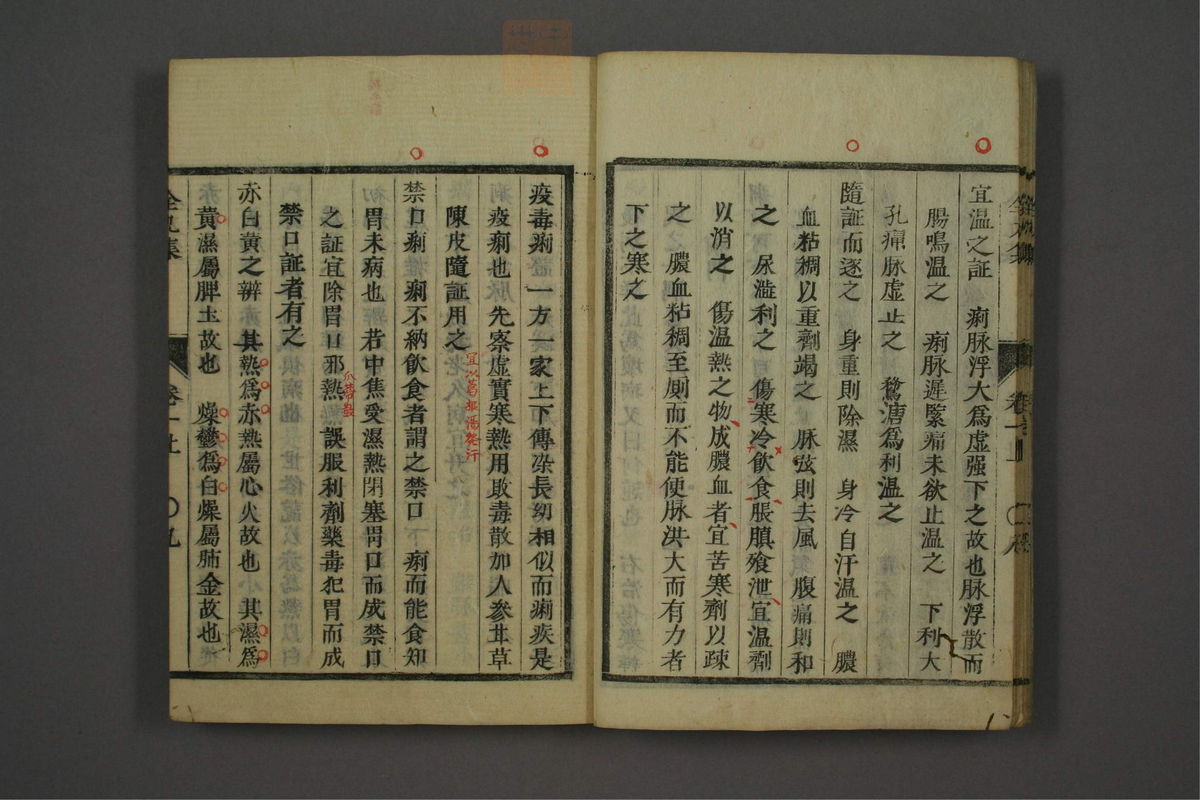 宜温之証　痢脉浮大爲虚强下之故也脉浮散而
腸鳴温之　痢脉遲緊痛未欲止温之　下利大
孔痛脉虚止之　鶩溏爲利温之
隨証而逐之　身重則除濕　身冷自汗温之　膿
血粘稠以重劑竭之　脉弦則去風　腹痛則和
之　尿澁利之　傷寒冷飲食脹膹飱泄宜温劑
以消之　傷温熱之物成膿血者宜苦寒劑以踈
之　膿血粘稠至厠而不能便脉洪大而有力者
下之寒之
疫毒痢　一方一家上下傳染長幼相似而痢疾是
疫痢也先察虚實寒熱用敗毒散加人參甘草
陳皮隨証用之
宜以葛根湯發汗
禁口痢　痢不納飲食者謂之禁口　痢而能食知
胃未病也　若中焦受濕熱閉塞胃口而成禁口
之証宜除胃口邪熱　誤服利劑藥毒犯胃而成
瓜蒂散
禁口証者有之
赤白黃之辨　其熱爲赤熱屬心火故也　其濕爲
黃濕屬脾土故也　燥鬱爲白燥屬肺金故也
卷一上
〇九